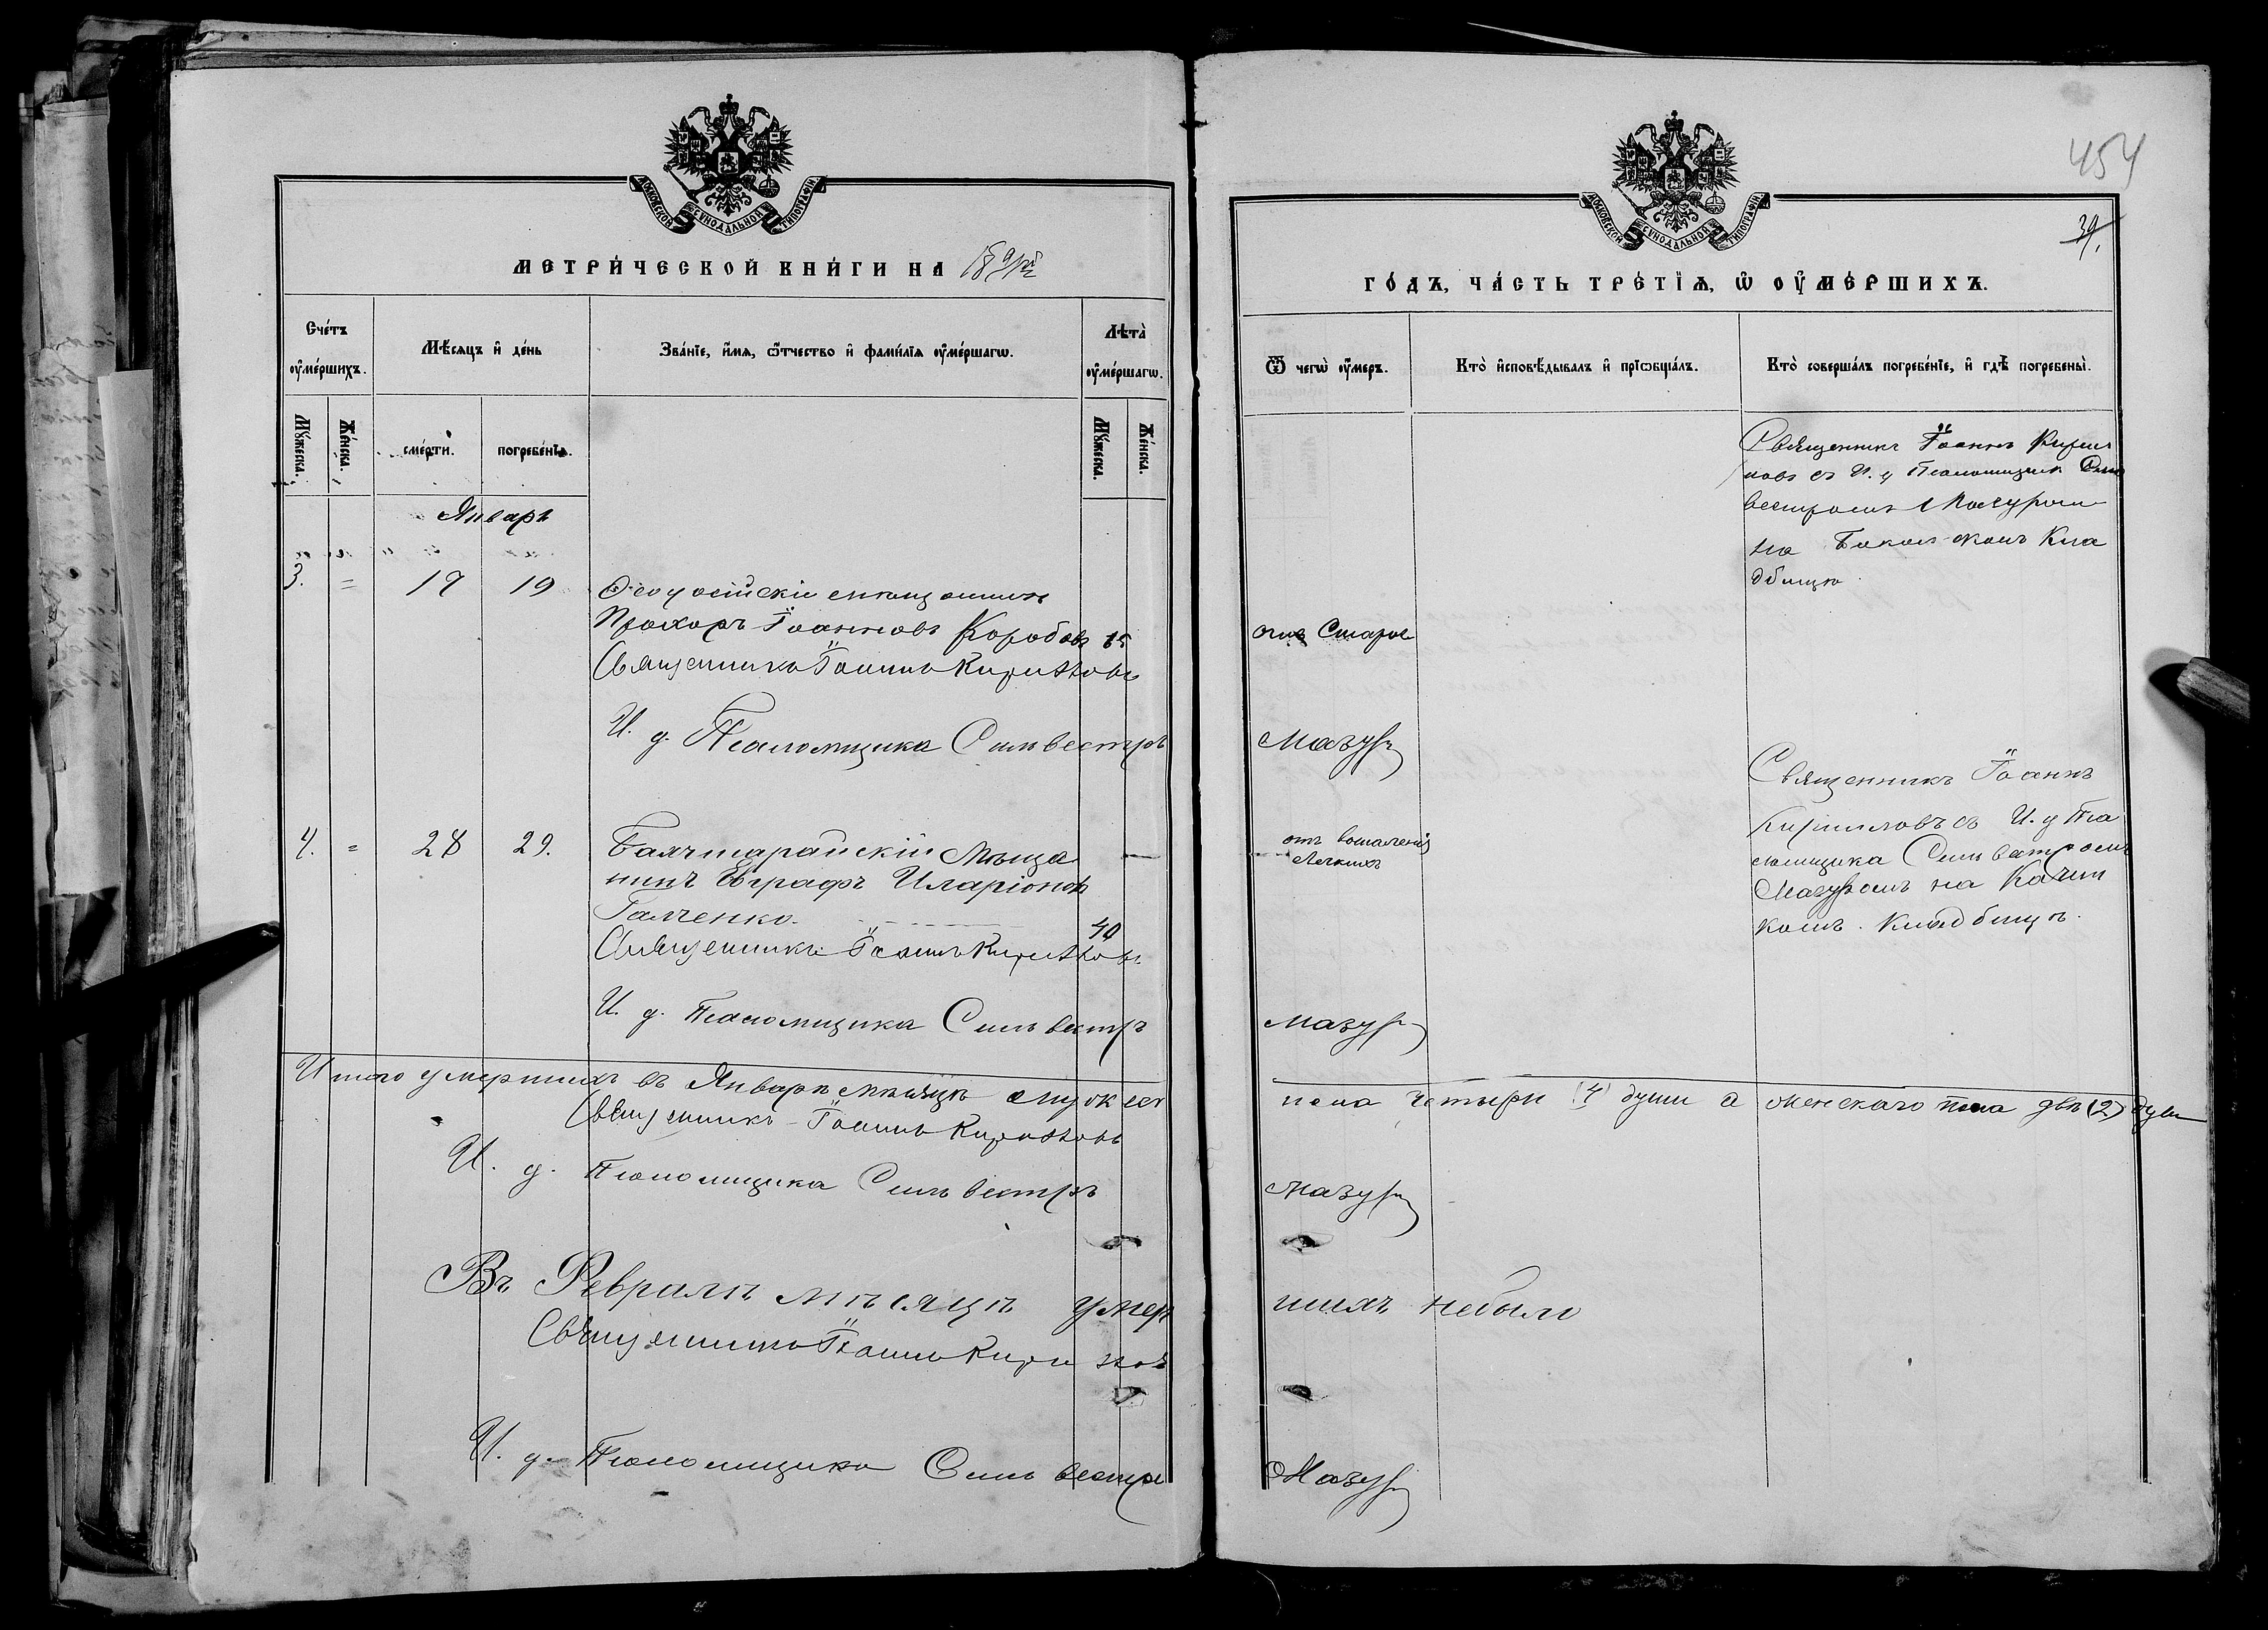 МОСКОВСКОЙ СѴНОДАЛЬНОЙ ТИПОГРАФІИ
МЕТРИ́ЧЕСКОЙ КНИ́ГИ НА
Сче́тъ оу҆ме́ршихъ.
Мѣ́сяцъ и҆ де́нь
Зва́нїе, и҆́мѧ, ѻ҆́тчество и҆ фами́лїѧ оу҆ме́ршагѡ.
Лѣ́та̀ оу҆ме́ршагѡ.
Мꙋ́жеска.
Же́нска.
сме́рти.
погребе́нїѧ.
Мꙋ́жеска.
Же́нска.
Январь
3. = 17 19
Прохоръ Іоанновъ Коробовъ
Священникъ Іоаннъ Кириловъ
И. д. Псаломщика Сильвестръ
4. = 28 29. Бахчисарайскій Мѣща
нинъ Евграфъ Иларіоновъ
Галченко. 40
Священникъ Іоаннъ Кириловъ
И. д. Псаломщика Сильвестръ
Итого умершихъ въ Январѣ мѣсяцѣ мужеск
Священникъ Іоаннъ Кириловъ
И. д. Псаломщика Сильвестръ
Въ Февралѣ мѣсяцѣ умер
Священникъ Іоаннъ Кириловъ
И. д. Псаломщика Сильвестръ
454
39.
МОСКОВСКОЙ СѴНОДАЛЬНОЙ ТИПОГРАФІИ
ГО́ДЪ, ЧА́СТЬ ТРЕ́ТЇѦ, Ѡ҆ ОУ҆МЕ́РШИХЪ.
Ѿ чегѡ̀ оу҆́меръ.
Кто̀ и҆сповѣ́дывалъ и҆ прїѡбща́лъ.
Кто̀ соверша́лъ погребе́нїе, и҆ гдѣ̀ погребены̀.
Священникъ Іоаннъ Кирил
ловъ съ И. д Псаломщика Силь
вестромъ Мазуромъ
на комъ Кла
дбищѣ
Мазуръ
отъ воспаленія
Легкихъ
Священникъ Іоаннъ
Кириловъ съ И. д Пса
ломщика Сильвестромъ
Мазуромъ на Качин
комъ Кладбищѣ.
Мазуръ
пола четыри (4) души а женскаго пола двѣ (2) души
Мазуръ
шихъ небыло
Мазуръ